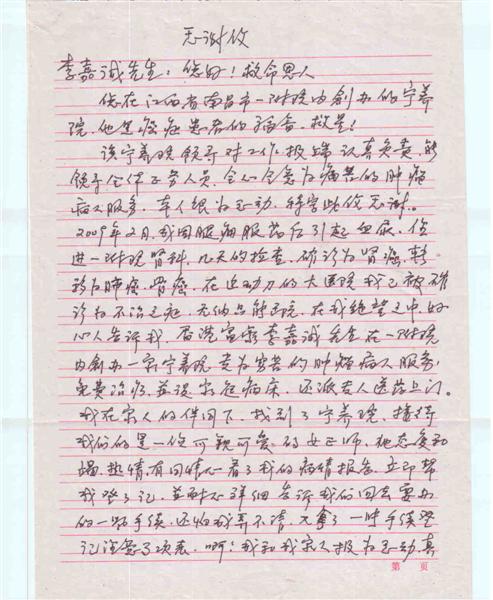 感谢信
李嘉诚先生：您好！救命恩人
您在江西省南昌市一附院内创办的宁养
院，他是癌症患者的福音、救星！
该宁养院领导对工作极端认真负责，能
领导全体医务人员，全心全意为痛苦的肿瘤
病人服务，本人很为感动，特写此信感谢。
2009年2月，我因服病服药后引起血尿，住
进一附院肾科，几天的检查，确诊为肾癌，转
移为肺癌、骨癌，在进动刀的大医院我已被确
诊为不治之症，无纳品能医院，在我绝望之中，好
心人告诉我，香港富豪李嘉诚先生在一附院
内创办一家宁养院，专为穷苦的肿瘤病人服务，
免费治疗，并设家庭病床，还派专人送药上门。
我在家人的伴同下，找到了宁养院，接待
我们的是一位可亲可爱的女医师，她态度和
蔼，热情有同情心，看了我的病情报告，立即帮
我登了记，并耐心详细告诉我们回去要办
的一切手续，还怕我弄不清，又拿了一附手续登
记注意事项表，啊！我和我家人极为感动，真
第 页